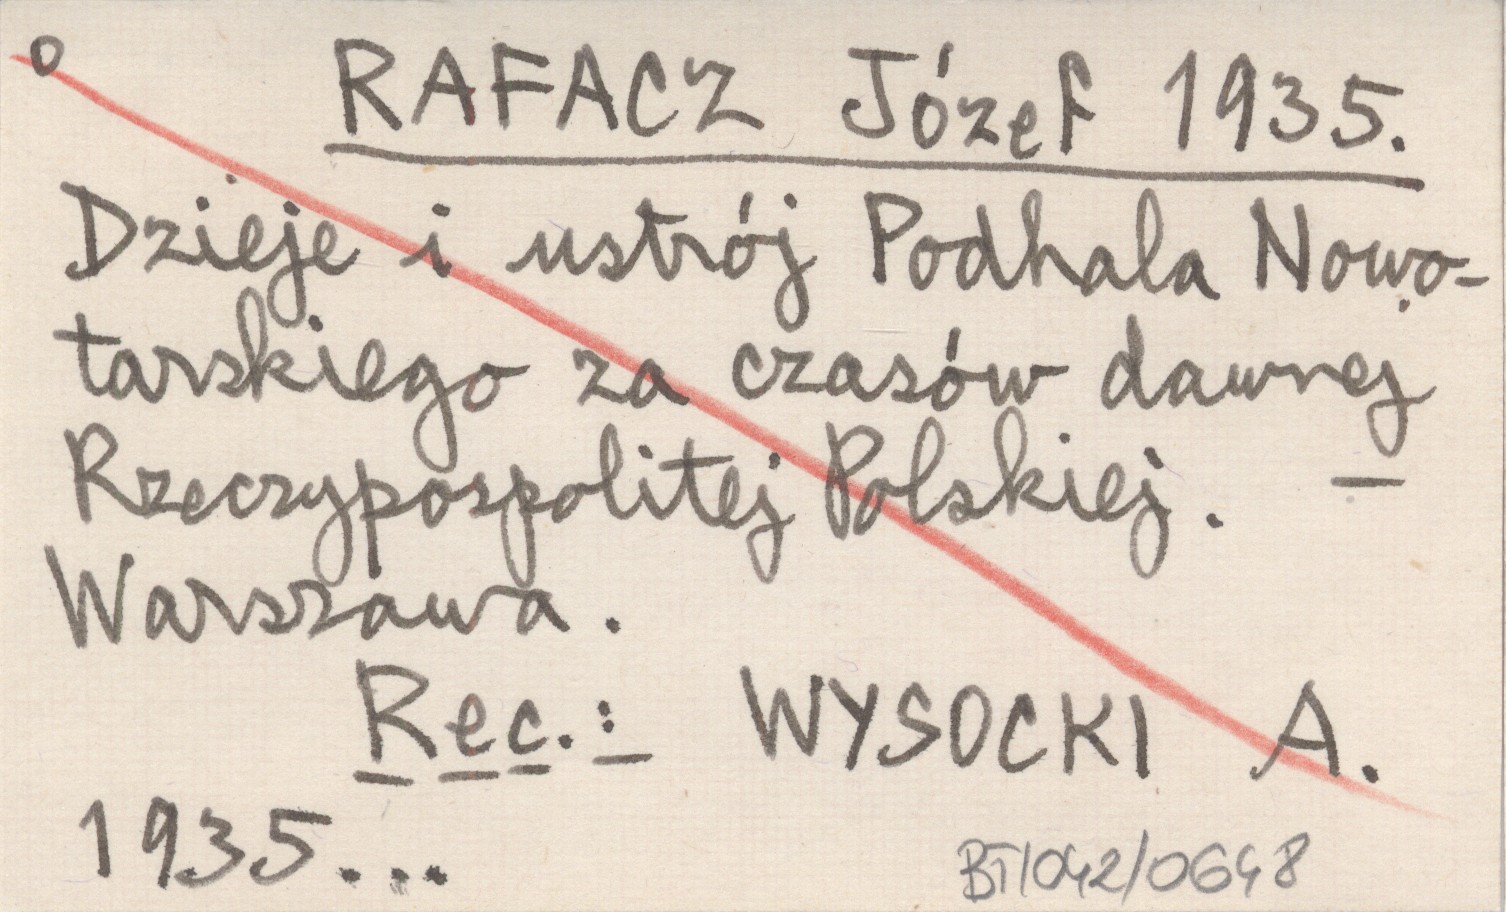 o RAFACZ Józef 1935.
Dzieje i ustrój Podhala Nowo-
tarskiego za czasów dawnej
Rzeczypospolitej Polskiej. —
Warszawa.
Rec.: WYSOCKI A.
1935...
BT/042/0648